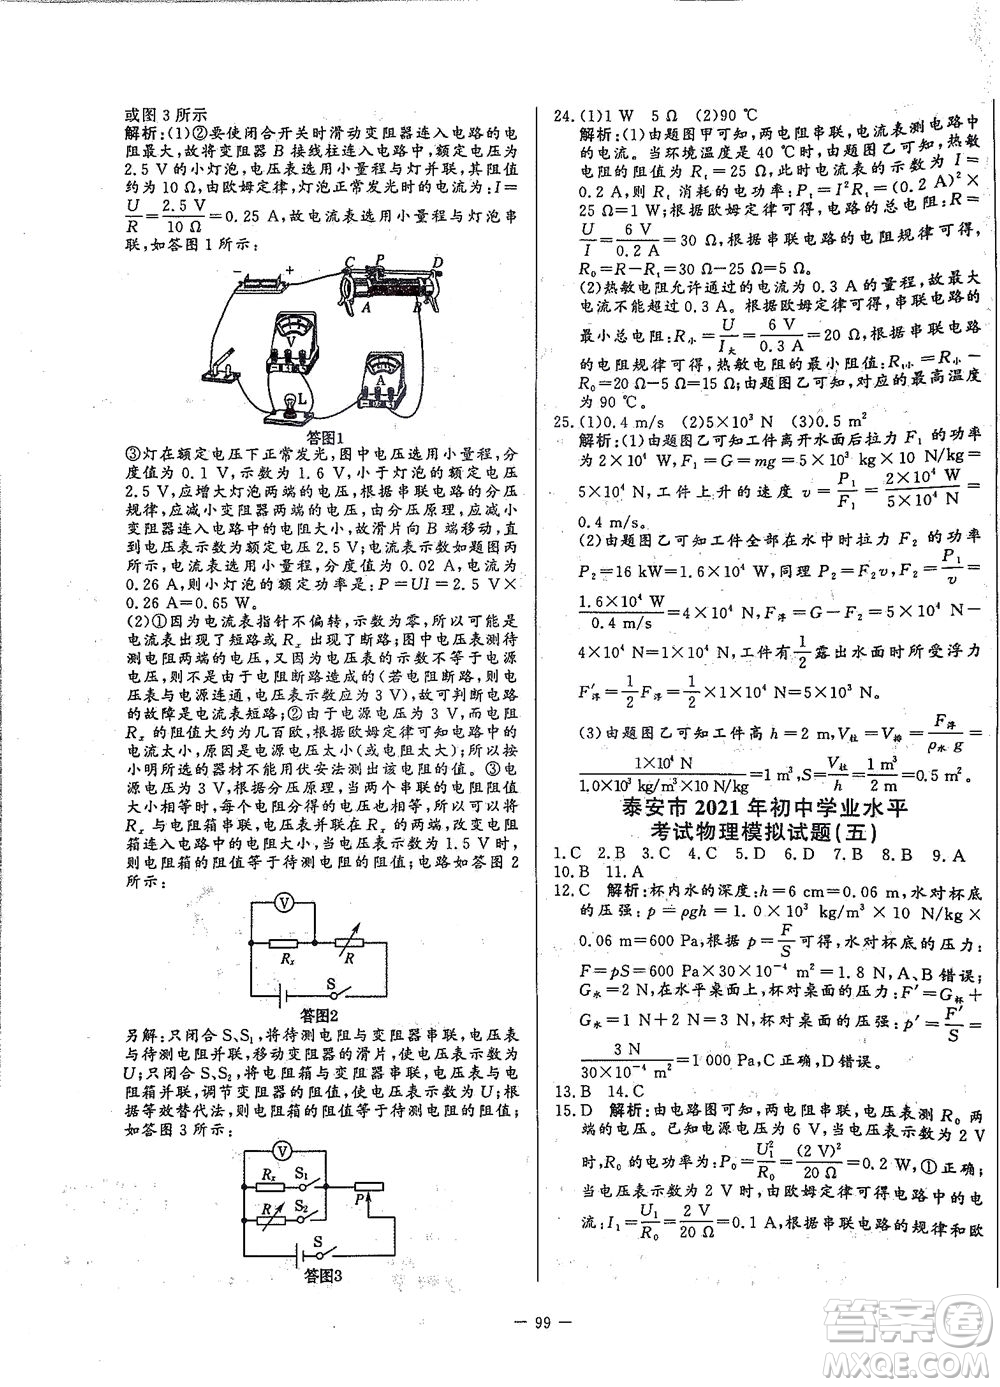 或图 3 所示
解析:(1)②要使闭合开关时滑动变阻器连入电路的电
阻最大,故将变阻器 B 接线柱连入电路中,额定电压为
2.5 V 的小灯泡,电压表选用小量程与灯并联,其阻值
约为 10 Ω,由欧姆定律,灯泡正常发光时的电流为:I=
U/R=2.5 V/10 Ω=0.25 A,故电流表选用小量程与灯泡串
联,如答图 1 所示:
− + C P D
A B
V
A
L
答图1
③灯在额定电压下正常发光,图中电压选用小量程,分
度值为 0.1 V,示数为 1.6 V,小于灯泡的额定电压
2.5 V,应增大灯泡两端的电压,根据串联电路的分压
规律,应减小变阻器两端的电压,由分压原理,应减小
变阻器连入电路中的电阻大小,故滑片向 B 端移动,直
到电压表示数为额定电压 2.5 V;电流表示数如题图丙
所示,电流表选用小量程,分度值为 0.02 A,电流为
0.26 A,则小灯泡的额定功率是:P=UI=2.5 V×
0.26 A=0.65 W。
(2)①因为电流表指针不偏转,示数为零,所以可能是
电流表出现了短路或 Rx 出现了断路;图中电压表测待
测电阻两端的电压,又因为电压表的示数不等于电源
电压,则不可能是由于电阻断路造成的(若电阻断路,则
电压表与电源连通,电压表示数应为 3 V),故可判断电路
的故障是电流表短路;②由于电源电压为 3 V,而电阻
Rx 的阻值大约为几百欧,根据欧姆定律可知电路中的
电流太小,原因是电源电压太小(或电阻太大),所以按
小明所选的器材不能用伏安法测出该电阻的值。③
电源电压为 3 V,根据分压原理,当两个串联的电阻阻
值大小相差不大时,分得的电压大小也相差不大,故将
Rx 与电阻箱串联,电压表测 Rx 两端的电压,改变电阻
箱连入电路中的电阻大小,当电压表示数为 1.5 V 时,
电阻箱的阻值等于待测电阻的阻值;电路如答图 2
所示:
V
Rx R
S
答图2
另解:只闭合 S、S1,将待测电阻与变阻器串联,电压表
与待测电阻并联,移动变阻器的滑片,使电压表示数为
U;只闭合 S、S2,将电阻箱与变阻器串联,电压表与电
阻箱并联,调节变阻器的阻值,使电压表示数为 U;根
据等效替代法,则电阻箱的阻值等于待测电阻的阻值,
如答图 3 所示:
V
Rx S1
P
R S2
S
答图3
24. (1)1 W 5 Ω (2)90 ℃
解析:(1)由题图甲可知,两电阻串联,电流表测电路中
的电流。当环境温度是 40 ℃时,由题图乙可知,热敏
电阻的阻值为 R1=25 Ω,此时电流表的示数为 I=
0.2 A,则 R1 消耗的电功率:P1=I²R1=(0.2 A)²×
25 Ω=1 W;根据欧姆定律可得,电路的总电阻:R=
U/I=6 V/0.2 A=30 Ω,根据串联电路的电阻规律可得:
R0=R−R1=30 Ω−25 Ω=5 Ω。
(2)热敏电阻允许通过的电流为 0.3 A 的量程,故最大
电流不能超过 0.3 A。根据欧姆定律可得,串联电路的
最小总电阻:R小=U/I大=6 V/0.3 A=20 Ω,根据串联电路
的电阻规律可得,热敏电阻的最小阻值:R1小=R小−
R0=20 Ω−5 Ω=15 Ω;由题图乙可知,对应的最高温度
为 90 ℃。
25. (1)0.4 m/s (2)5×10³ N (3)0.5 m²
解析:(1)由题图乙可知工件离开水面后拉力 F1 的功率
为 2×10⁴ W,F1=G=mg=5×10³ kg×10 N/kg=
5×10⁴ N,工件上升的速度 v=P1/F1=2×10⁴ W/5×10⁴ N=
0.4 m/s。
(2)由题图乙可知工件全部在水中时拉力 F2 的功率
P2=16 kW=1.6×10⁴ W,同理 P2=F2v,F2=P1/v=
1.6×10⁴ W/0.4 m/s=4×10⁴ N,F浮=G−F2=5×10⁴ N−
4×10⁴ N=1×10⁴ N,工件有1/2露出水面时所受浮力
F′浮=1/2F浮=1/2×1×10⁴ N=5×10³ N。
(3)由题图乙可知工件高 h=2 m,V柱=V排=F浮/ρ水g=
1×10⁴ N/1.0×10³ kg/m³×10 N/kg=1 m³,S=V柱/h=1 m³/2 m=0.5 m²。
泰安市 2021 年初中学业水平
考试物理模拟试题(五)
1. C 2. B 3. C 4. C 5. D 6. D 7. B 8. B 9. A
10. B 11. A
12. C 解析:杯内水的深度:h=6 cm=0.06 m,水对杯底
的压强:p=ρgh=1.0×10³ kg/m³×10 N/kg×
0.06 m=600 Pa,根据 p=F/S可得,水对杯底的压力:
F=pS=600 Pa×30×10⁻⁴ m²=1.8 N,A、B 错误;
G水=2 N,在水平桌面上,杯对桌面的压力:F′=G杯+
G水=1 N+2 N=3 N,杯对桌面的压强:p′=F′/S=
3 N/30×10⁻⁴ m²=1 000 Pa,C 正确,D 错误。
13. B 14. C
15. D 解析:由电路图可知,两电阻串联,电压表测 R0 两
端的电压。已知电源电压为 6 V,当电压表示数为 2 V
时,R0 的电功率为:P0=U1²/R0=(2 V)²/20 Ω=0.2 W,①正确;
当电压表示数为 2 V 时,由欧姆定律可得电路中的电
流:I1=U1/R0=2 V/20 Ω=0.1 A,根据串联电路的规律和欧
— 99 —
答案圈
MXQE.COM